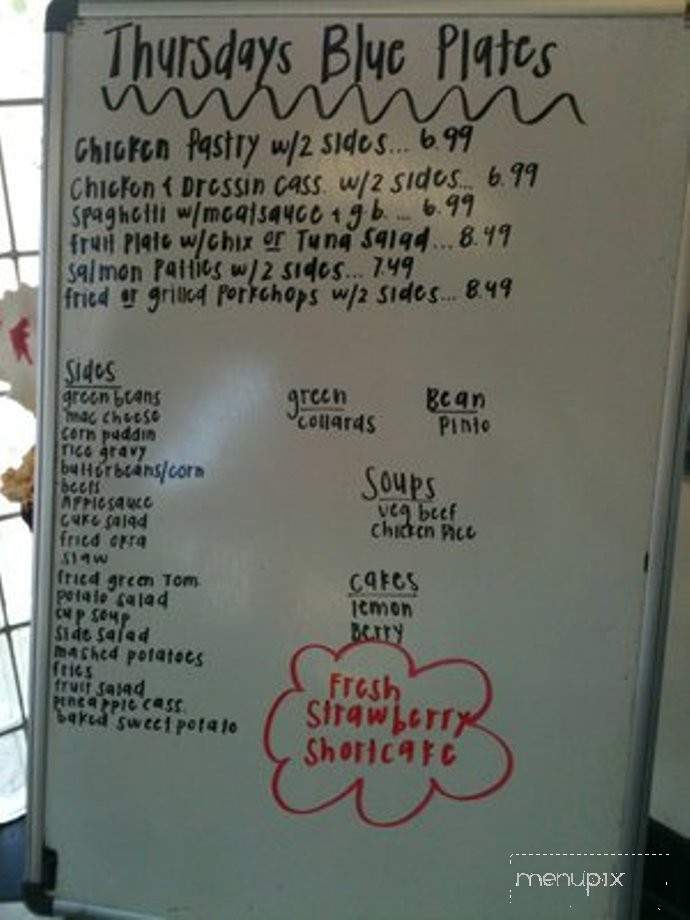 Thursdays Blue Plates
Chicken Pastry w/2 sides... 6.99
Chicken & Dressin Cass. w/2 sides... 6.99
Spaghetti w/meatsauce & g.b. ... 6.99
fruit Plate w/chix or Tuna Salad... 8.49
Salmon Patties w/2 sides... 7.49
fried or grilled Porkchops w/2 sides... 8.49
Sides
green beans
mac cheese
corn puddin
rice gravy
butterbeans/corn
beets
Applesauce
cuke salad
fried okra
slaw
fried green Tom
potato salad
cup soup
side salad
mashed potatoes
fries
fruit salad
pineapple cass.
baked sweet potato
green
collards
Bean
Pinto
Soups
veg beef
chicken Rice
cakes
lemon
Berry
Fresh
Strawberry
Shortcake
menupix